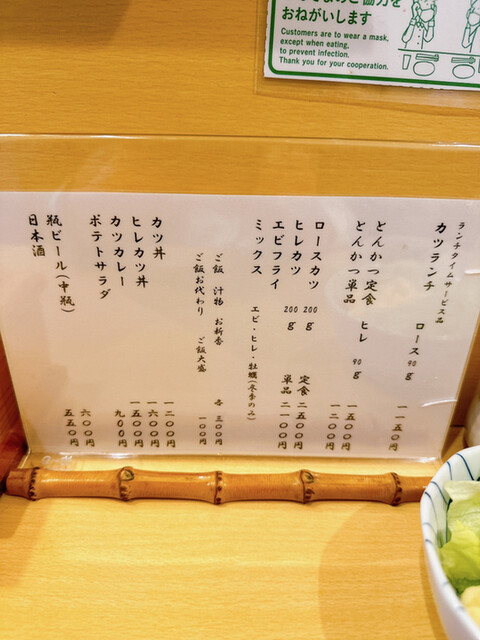 ご協力を
おねがいします
Customers are to wear a mask,
except when eating,
to prevent infection.
Thank you for your cooperation.
ランチタイムサービス品
カツランチ ロース90g 一一五〇円
とんかつ定食 ヒレ 90g 一五〇〇円
とんかつ単品 一二〇〇円
ロースカツ 200g 定食 二五〇〇円
ヒレカツ 200g 単品 二一〇〇円
エビフライ
ミックス エビ・ヒレ・牡蠣(冬季のみ)
ご飯 汁物 お新香 各 三〇〇円
ご飯お代わり ご飯大盛 一〇〇円
カツ丼 一二〇〇円
ヒレカツ丼 一六〇〇円
カツカレー 一五〇〇円
ポテトサラダ 九〇〇円
瓶ビール(中瓶) 六〇〇円
日本酒 五五〇円